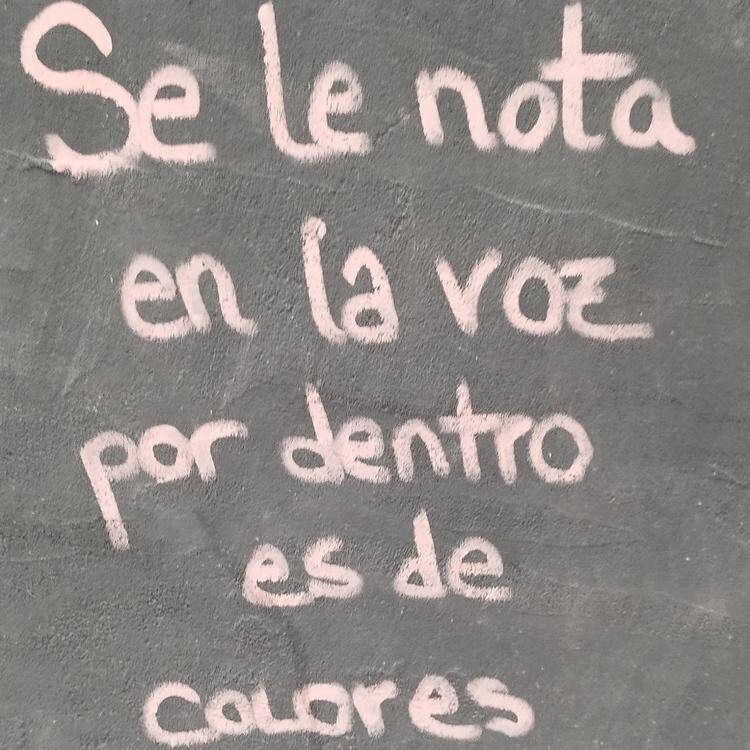 Se le nota
en la voz
por dentro
es de
colores